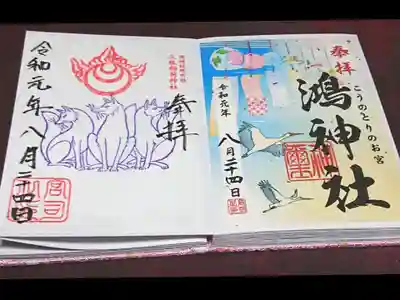 奉拝
こうのとりのお宮
鴻神社
令和元年
八月二十四日
三狐稲荷神社
奉拝
令和元年
八月二十四日
宮司